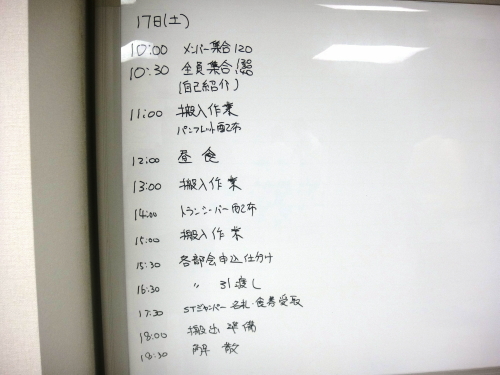 17日(土)
10:00 メンバー集合120
10:30 全員集合
(自己紹介)
11:00 搬入作業
パンフレット配布
12:00 昼食
13:00 搬入作業
14:00 トランシーバー配布
15:00 搬入作業
15:30 各部会申込仕分け
16:30 〃 引渡し
17:30 STジャンパー名札・食券受取
18:00 搬出準備
18:30 解散